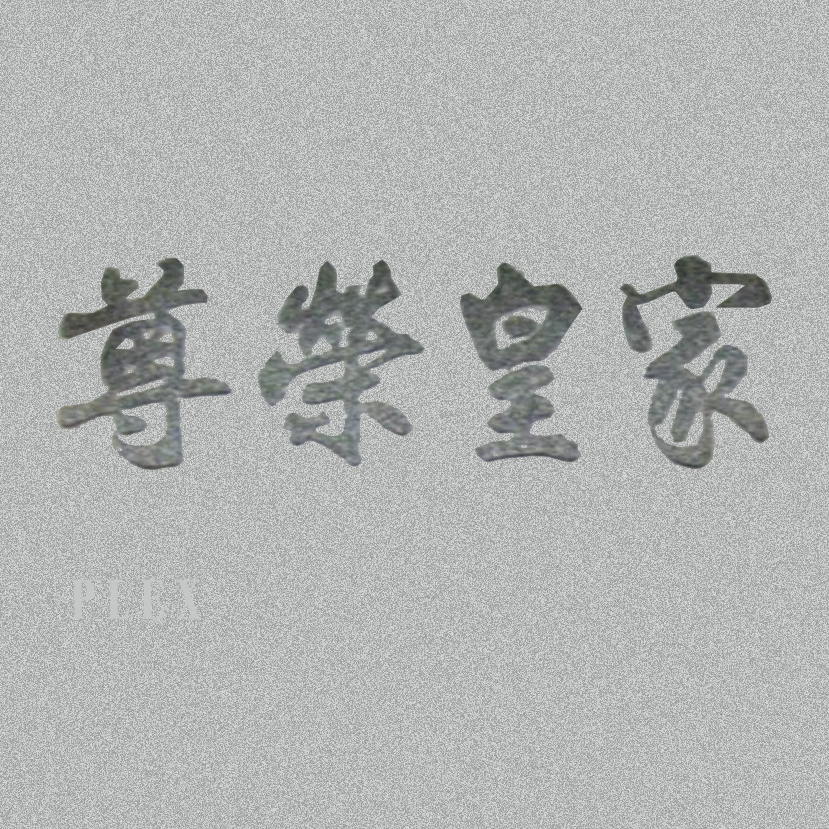 尊榮皇家
PLEX